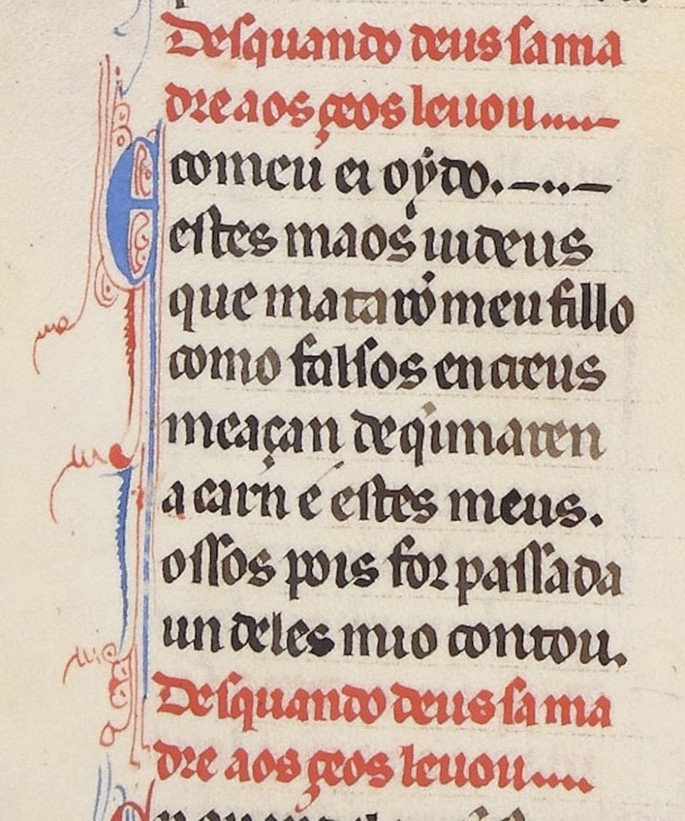 Desquando deus sa ma
dre aos çeos leuou....
E como eu ei oỳdo.—..—
estes maos iudeus
que mataró meu fillo
como falsos encreus
meaçan de qimaren
a carn e estes meus.
ossos pois for passada
un deles mio contou.
Desquando deus sa ma
dre aos çeos leuou....